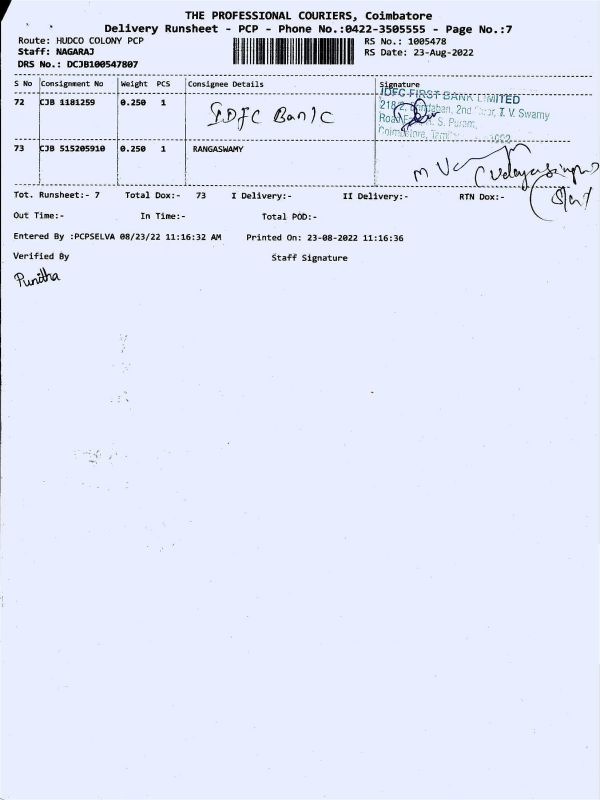 THE PROFESSIONAL COURIERS, Coimbatore
Delivery Runsheet - PCP - Phone No.:0422-3505555 - Page No.:7
Route: HUDCO COLONY PCP RS No.: 1005478
Staff: NAGARAJ RS Date: 23-Aug-2022
DRS No.: DCJB100547807
S No Consignment No Weight PCS Consignee Details Signature
72 CJB 1181259 0.250 1 IDFC Bank
IDFC FIRST BANK LIMITED
2nd T. V. Swamy
S. Puram,
73 CJB 515205910 0.250 1 RANGASWAMY
Tot. Runsheet:- 7 Total Dox:- 73 I Delivery:- II Delivery:- RTN Dox:-
Out Time:- In Time:- Total POD:-
Entered By :PCPSELVA 08/23/22 11:16:32 AM Printed On: 23-08-2022 11:16:36
Verified By Staff Signature
Punitha